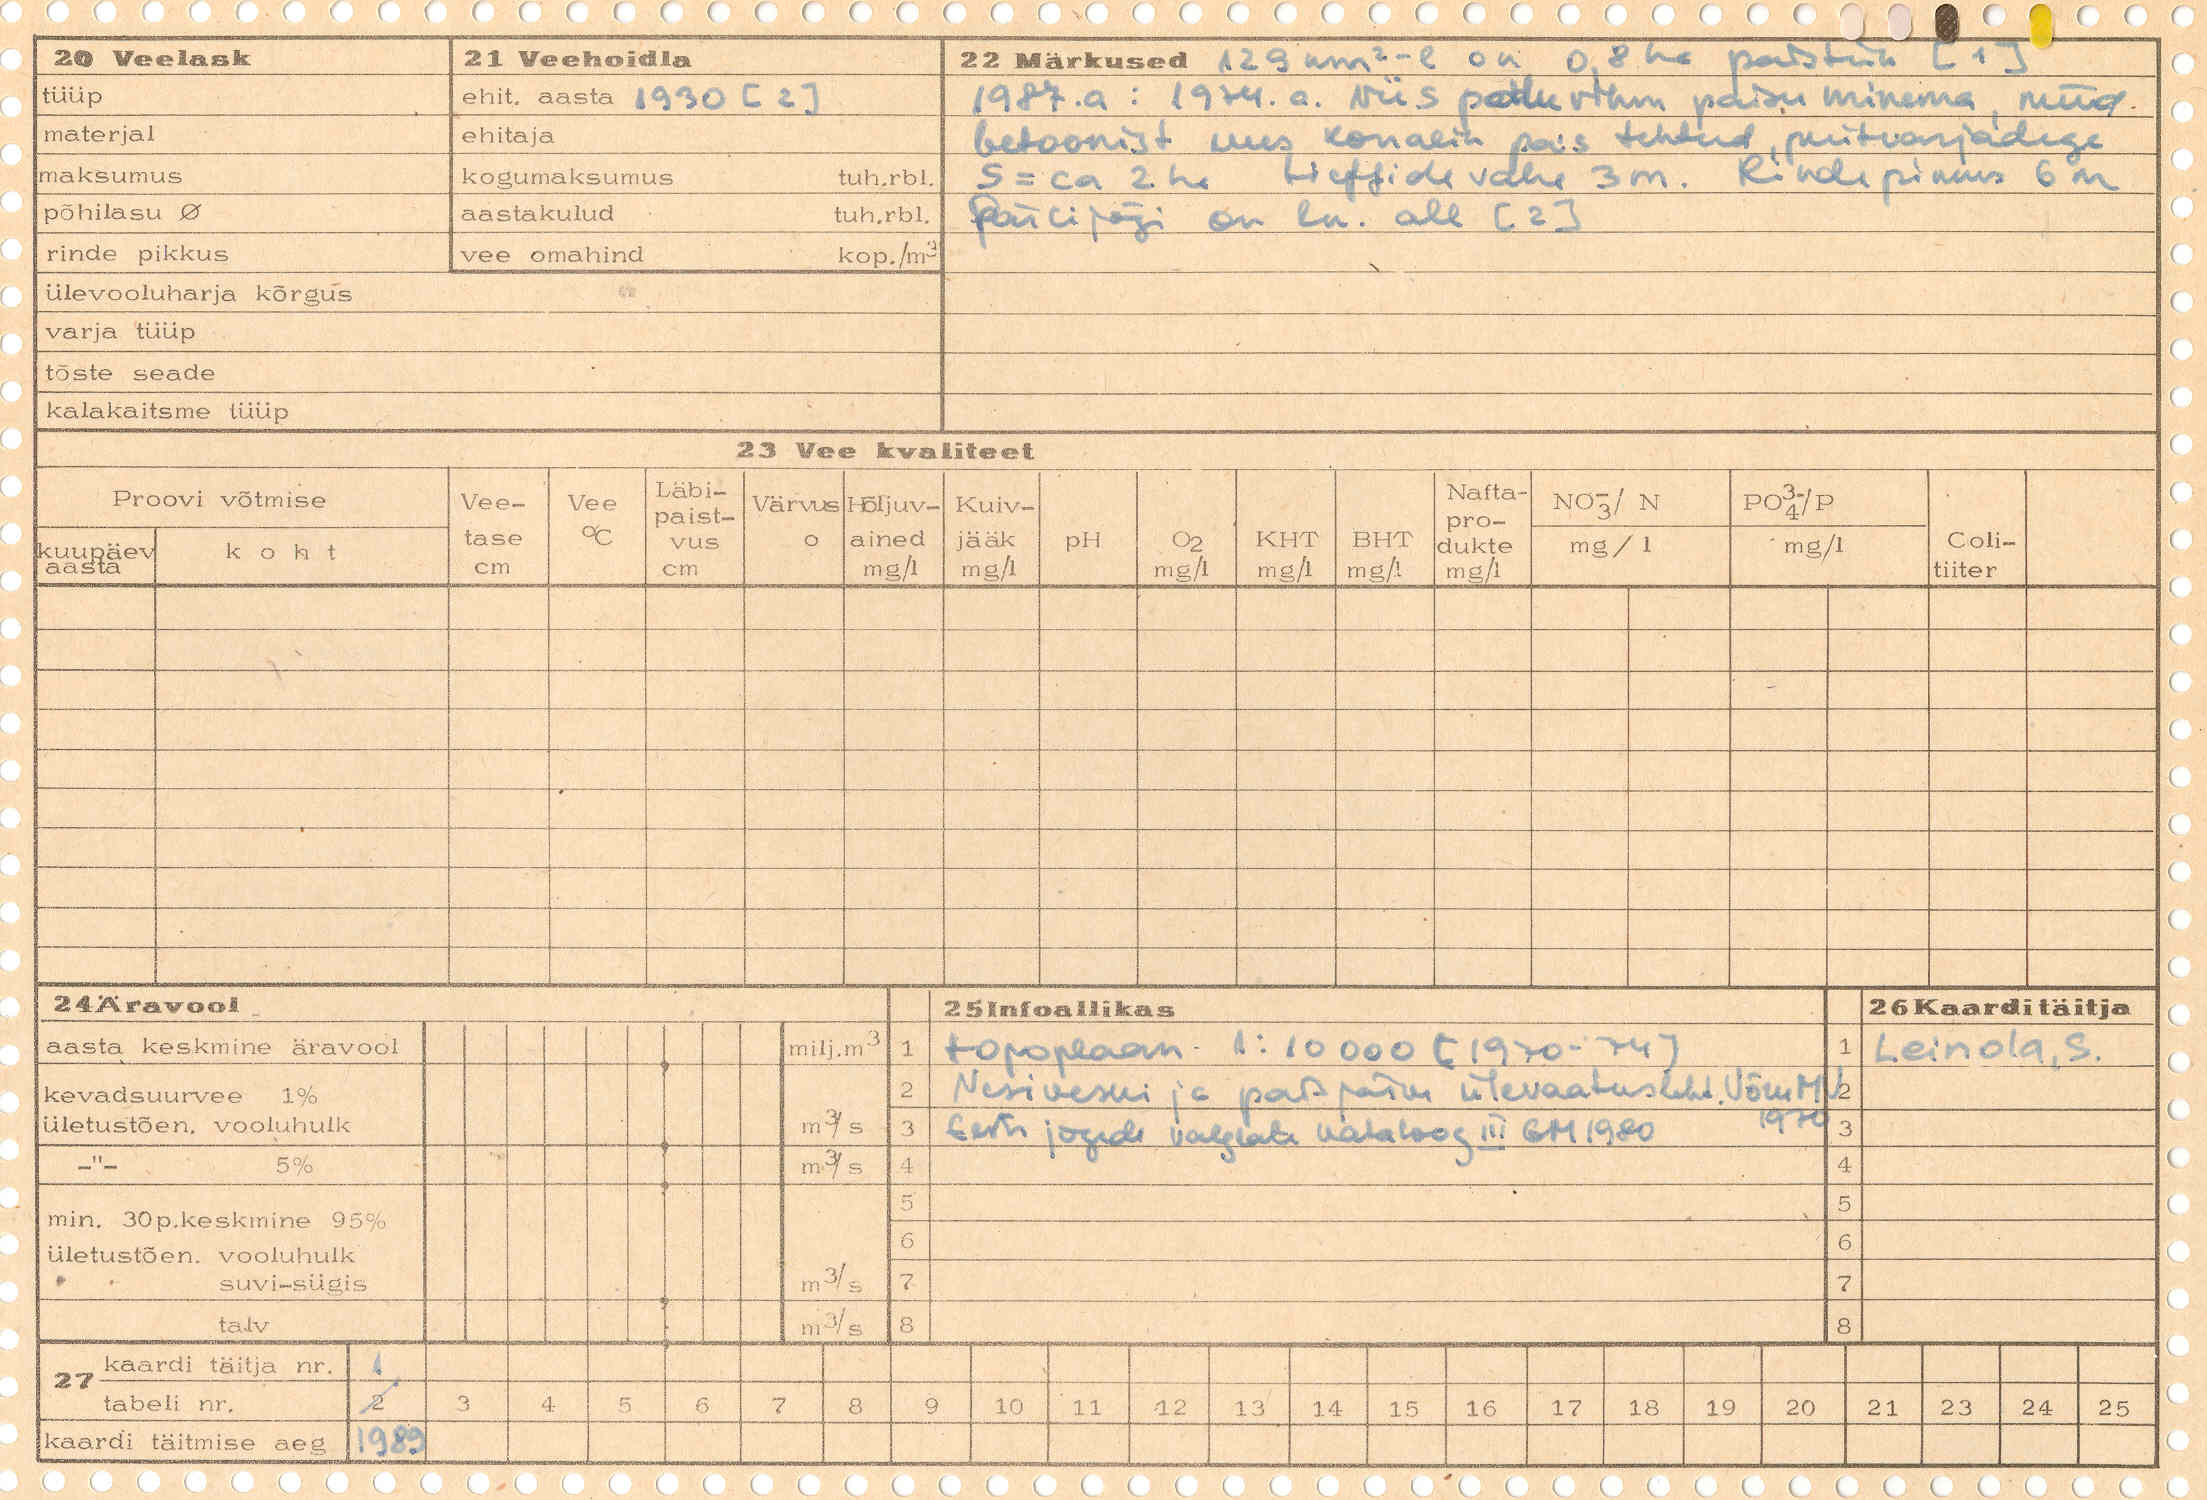 20 Veelask
tüüp
materjal
maksumus
põhilasu Ø
rinde pikkus
ülevooluharja kõrgus
varja tüüp
tõste seade
kalakaitsme tüüp
21 Veehoidla
ehit. aasta 1930 [2]
ehitaja
kogumaksumus tuh.rbl.
aastakulud tuh.rbl.
vee omahind kop./m³
22 Märkused 129 km²-l on 0,8 ha paistiik [1]
1987.a : 1974. a. viis paduvihm paisu minema, nüüd
betoonist uus korralik pais tehtud, puitvarjadega
S = ca 2 ha bieffide vahe 3 m. Rinde pikkus 6 m
on lk. all [2]
23 Vee kvaliteet
Proovi võtmise
kuupäev aasta
koht
Vee-tase cm
Vee °C
Läbi-paist-vus cm
Värvus o
Hõljuv-ained mg/l
Kuiv-jääk mg/l
pH
O2 mg/l
KHT mg/l
BHT mg/l
Nafta-pro-dukte mg/l
NO3⁻/ N mg/l
PO4³⁻/P mg/l
Coli-tiiter
24 Äravool
aasta keskmine äravool milj.m³
kevadsuurvee 1%
ületustõen. vooluhulk m³/s
-"- 5% m³/s
min. 30p.keskmine 95%
ületustõen. vooluhulk
suvi-sügis m³/s
talv m³/s
25 Infoallikas
1 topoplaan 1:10 000 [1970-74]
2 Vesiveski ja paisjärve ülevaatusleht. Võru MV
1970
3 Eesti jõgede valglate kataloog III EM 1980
4
5
6
7
8
26 Kaarditäitja
1 Leinola, S.
2
3
4
5
6
7
8
27 kaardi täitja nr. 1
tabeli nr. 2 3 4 5 6 7 8 9 10 11 12 13 14 15 16 17 18 19 20 21 23 24 25
kaardi täitmise aeg 1989